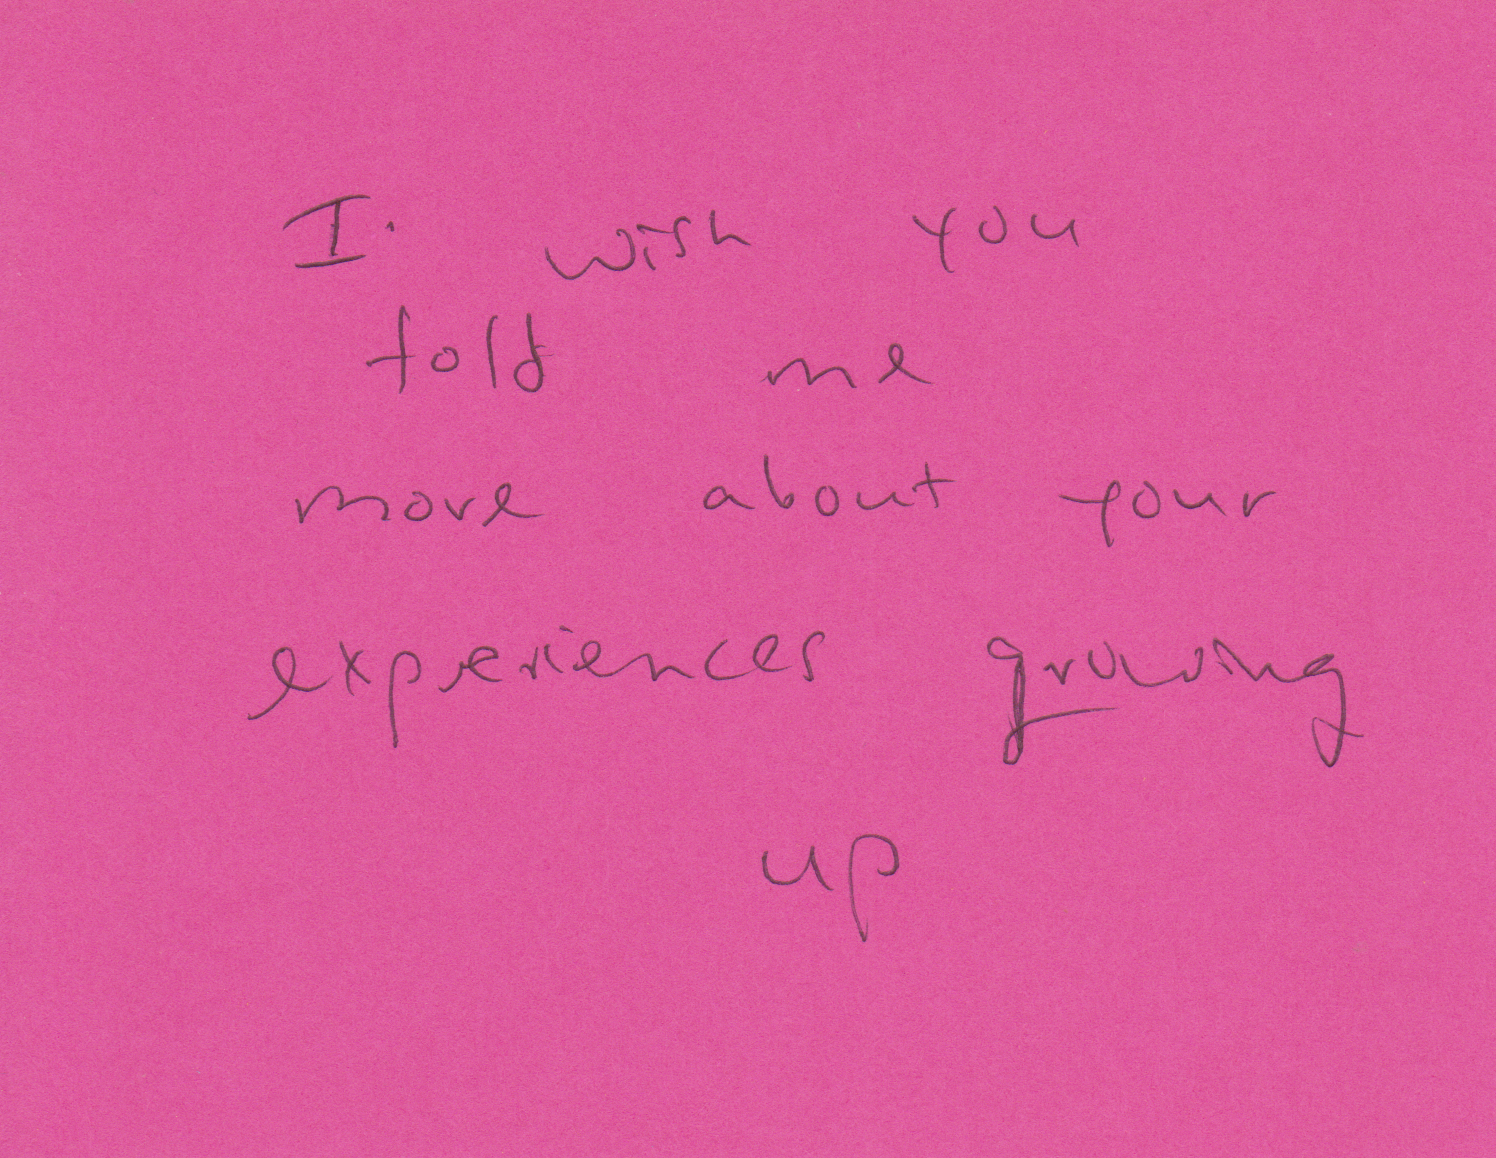 I. wish you
told me
more about your
experiences growing
up